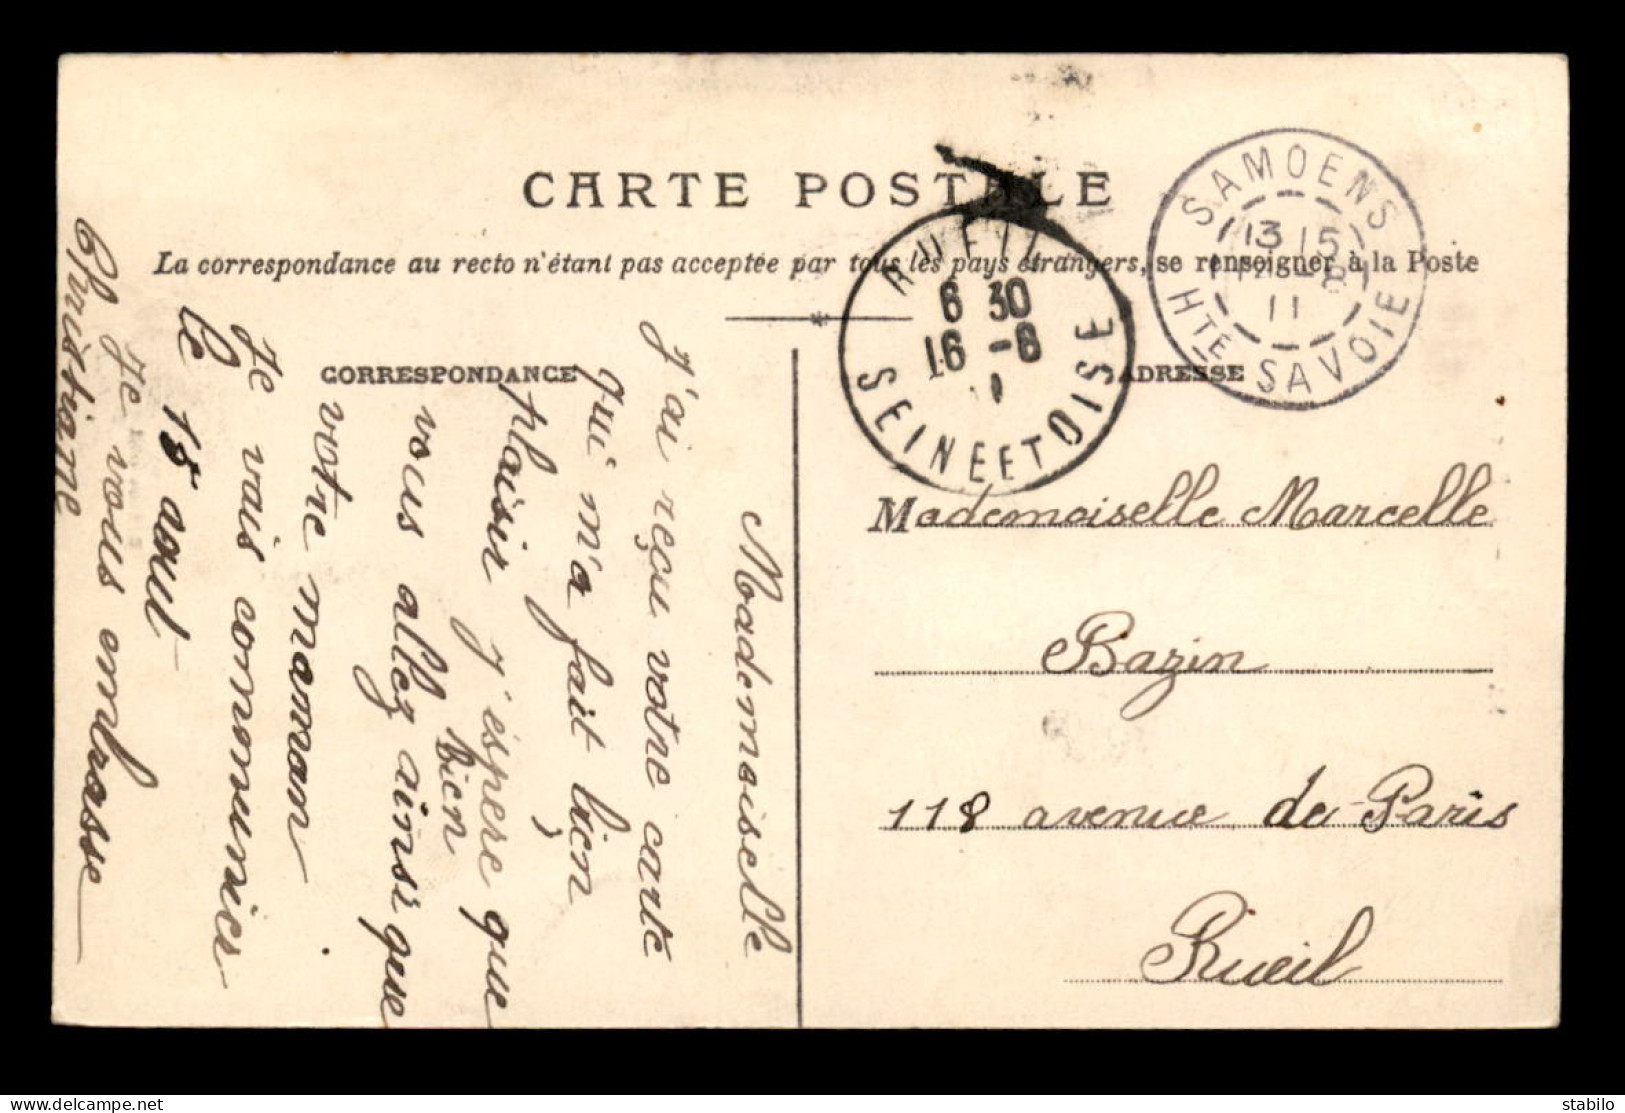 CARTE POSTALE
La correspondance au recto n'étant pas acceptée par tous les pays étrangers, se renseigner à la Poste
CORRESPONDANCE
ADRESSE
SAMOENS
13 15
-8
11
HTE SAVOIE
RUEIL
6 30
16 -8
SEINE ET OISE
Mademoiselle
j'ai reçu votre carte
qui m'a fait bien
plaisir j'éspere que
vous allez bien ainsi que
votre maman.
Je vais communier
le 15 aout
Je vous embrasse
Christiane
Mademoiselle Marcelle
Bazin
118 avenue de Paris
Rueil
delcampe.net
stabilo